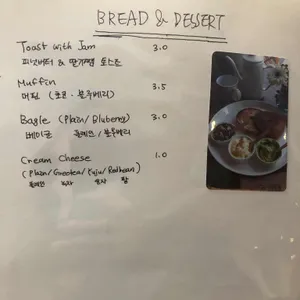 BREAD & DESSERT
Toast with Jam 3.0
피넛버터 & 딸기잼 토스트
Muffin 3.5
머핀 (초코 · 블루베리)
Bagle (Plain/Bluberry) 3.0
베이글 플레인 / 블루베리
Cream Cheese 1.0
(Plain/Guotea/Yuju/Redbean)
플레인 유자 팥